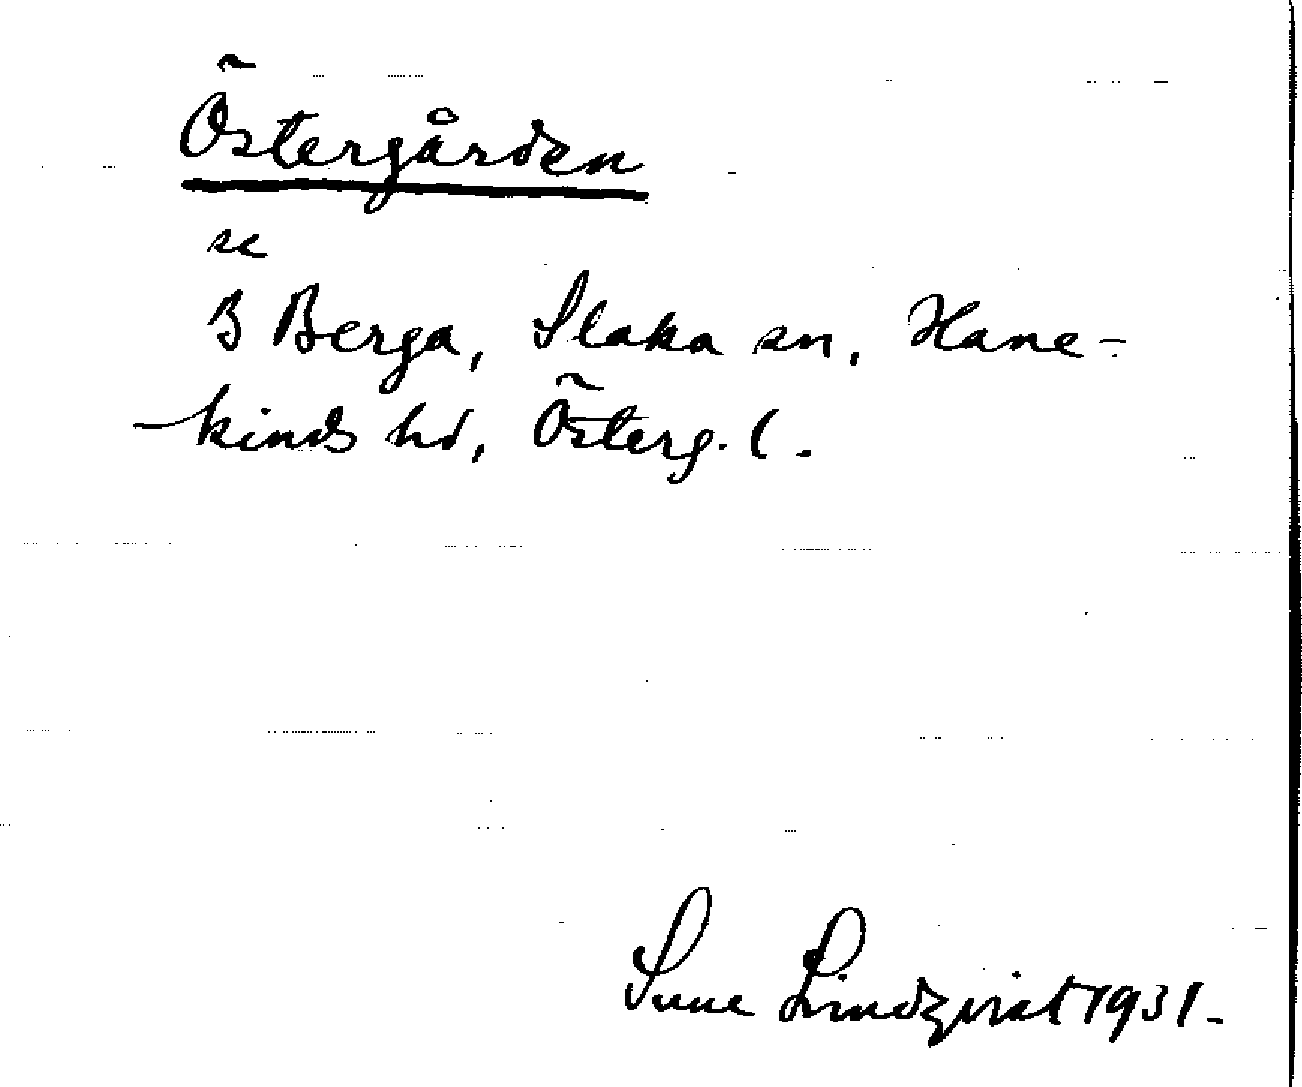 Östergården
se
B Berga, Slaka sn, Hane-
-kinds hd, Österg. l.
Sune Lindqvist 1931.